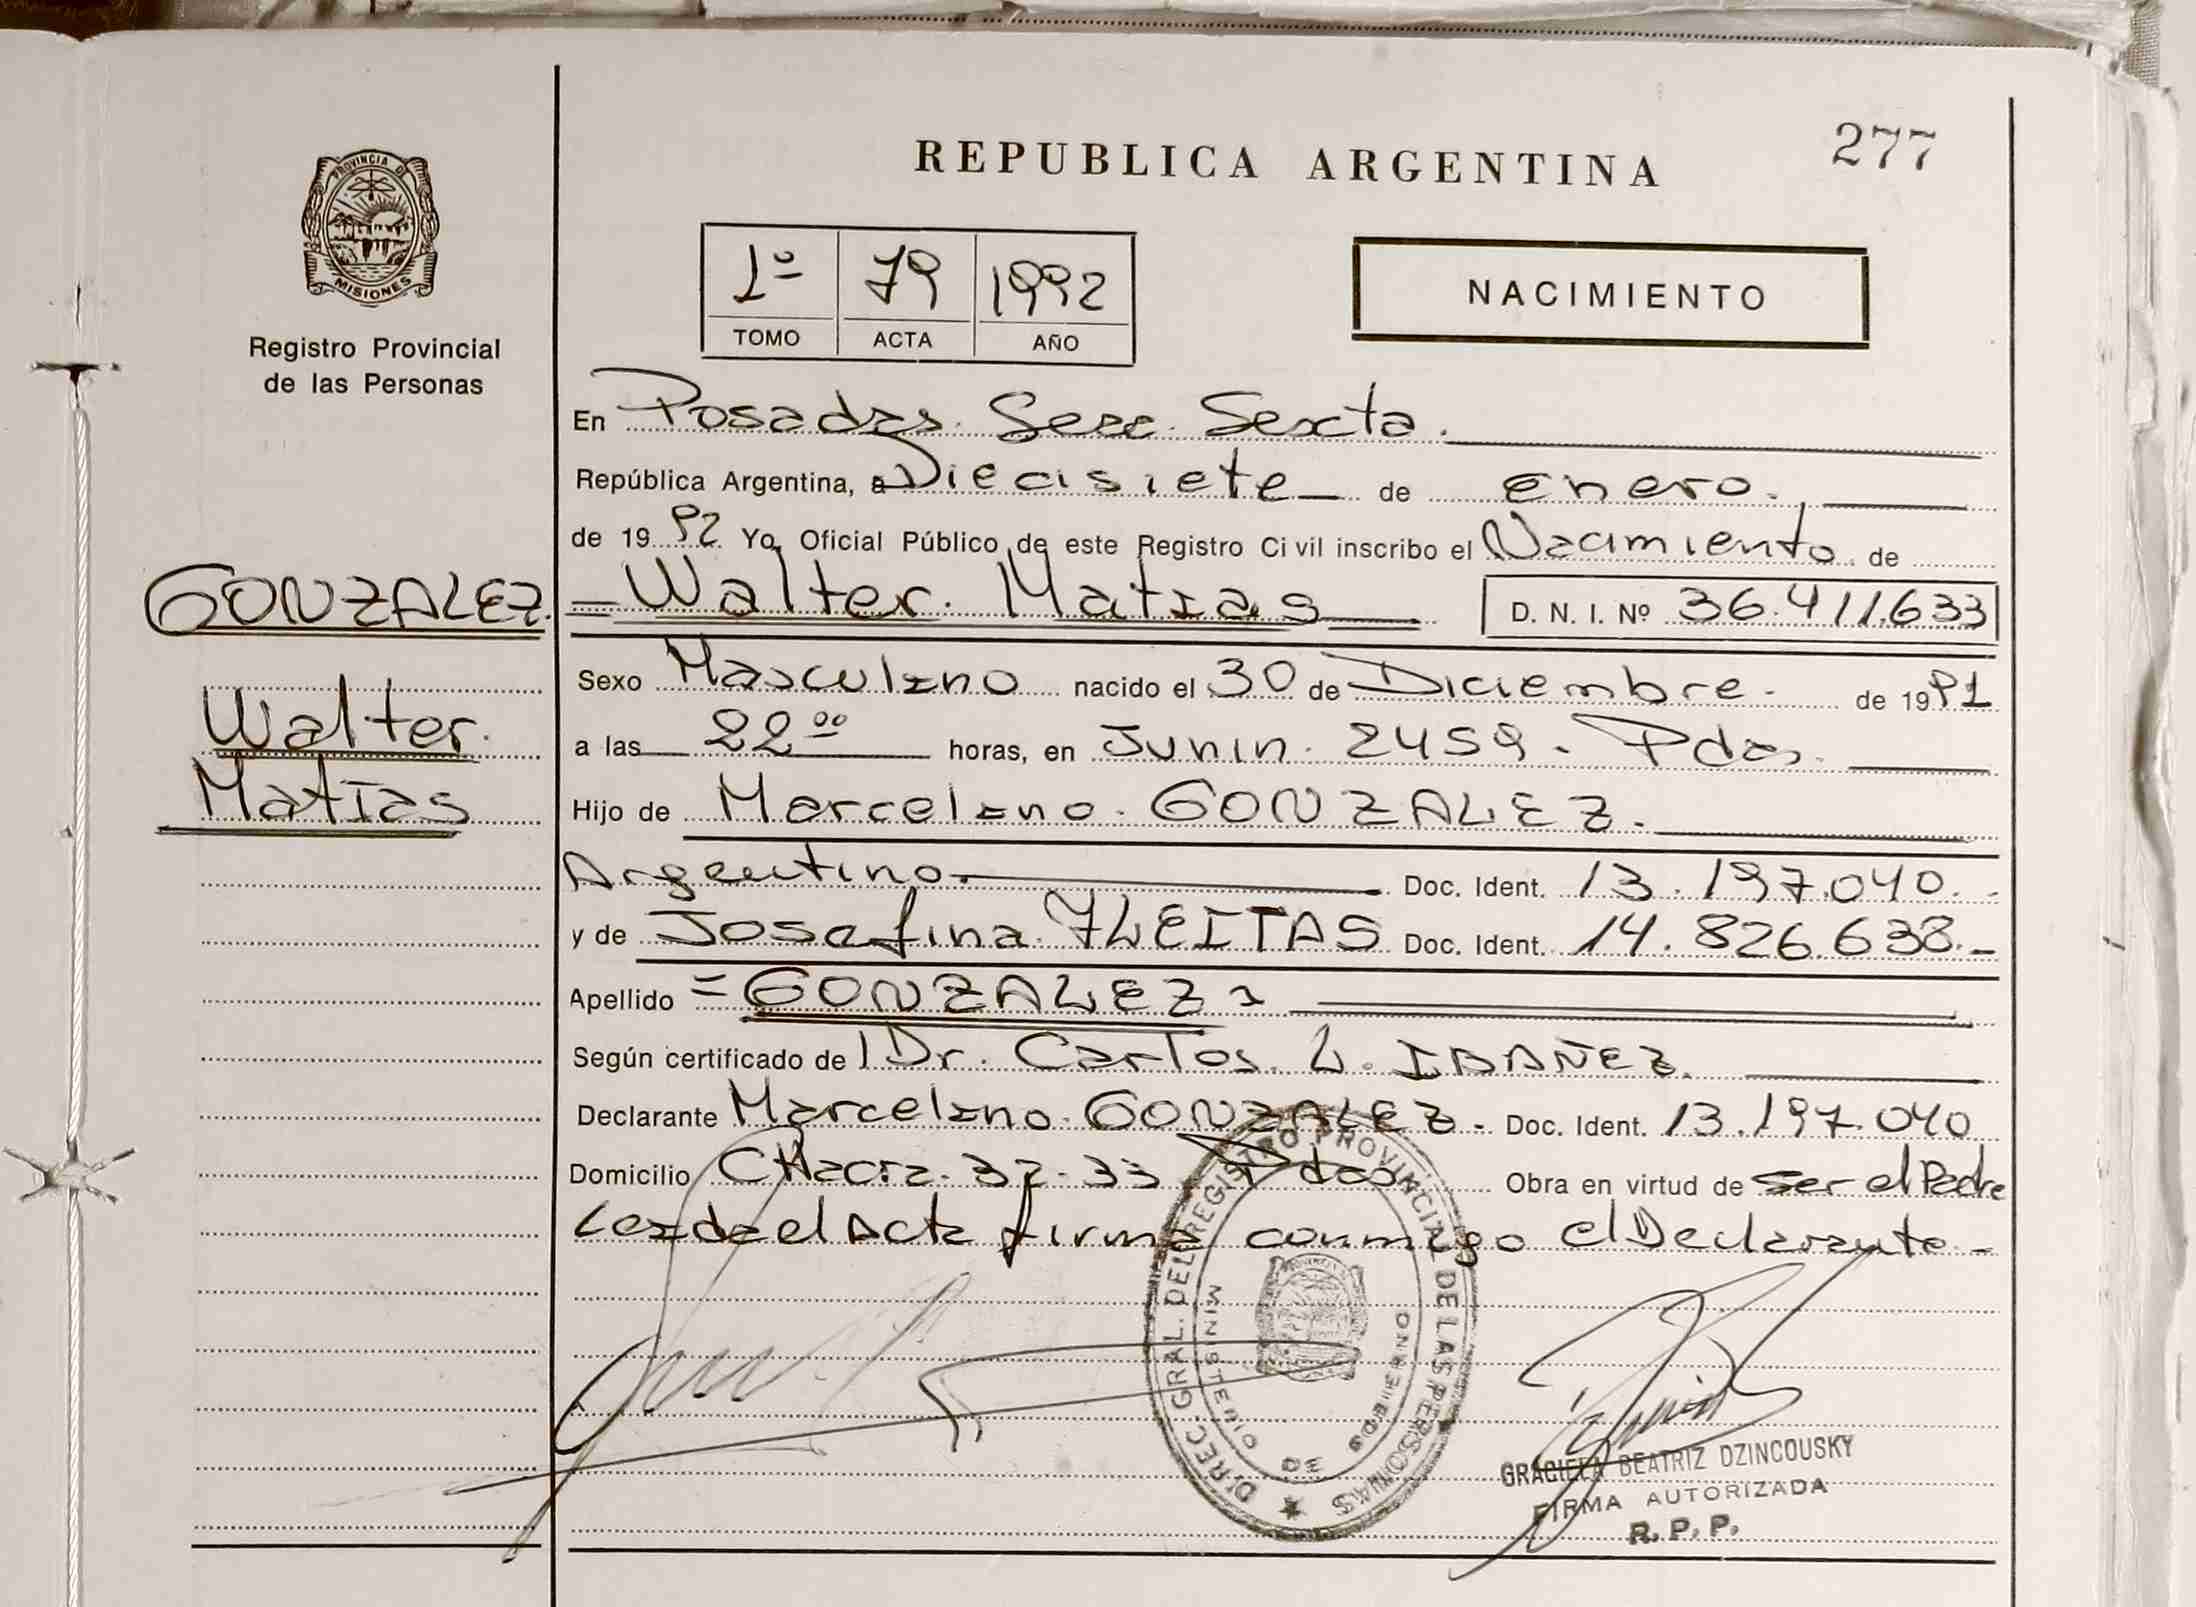 REPUBLICA ARGENTINA
277
PROVINCIA DE MISIONES
Registro Provincial
de las Personas
1º 79 1992
TOMO ACTA AÑO
NACIMIENTO
En Posadas. Secc. Sexta.
República Argentina, a Diecisiete de enero.
de 1992 Yo, Oficial Público de este Registro Civil inscribo el Nacimiento de
GONZALEZ. Walter. Matias D. N. I. Nº 36.411.633
Sexo Masculino nacido el 30 de Diciembre. de 1991
Walter.
a las 22 00 horas, en Junin. 2459. Pdas.
Matías
Hijo de Marcelino. GONZALEZ.
Argentino. Doc. Ident. 13.197.040.
y de Josefina FLEITAS Doc. Ident. 14.826.638.-
Apellido = GONZALEZ
Según certificado de Dr. Carlos. L. IBAÑEZ.
Declarante Marcelino. GONZALEZ. Doc. Ident. 13.197.040
Domicilio CHacra. 32-33 Pdas. Obra en virtud de ser el Padre
Leida el Acta firma conmigo el Declarante.-
DIREC. GRAL. DEL REGISTRO PROVINCIAL DE LAS PERSONAS
MINISTERIO DE GOBIERNO
GRACIELA BEATRIZ DZINCOUSKY
FIRMA AUTORIZADA
R. P. P.